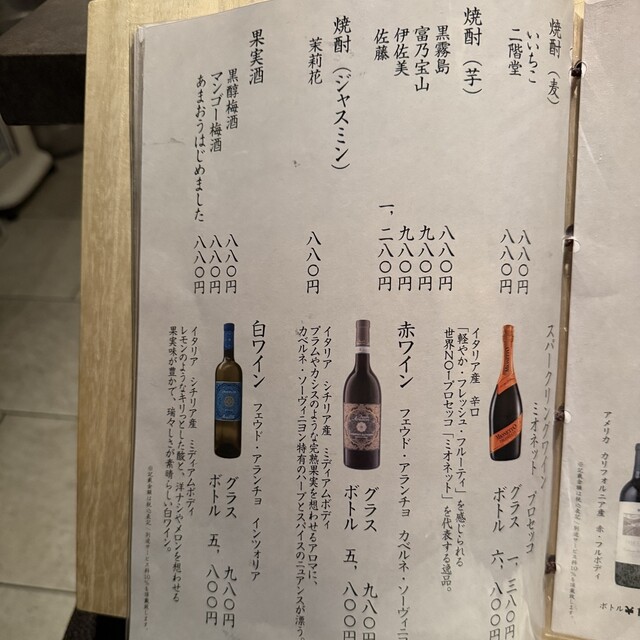 焼酎（麦）
いいちこ 八八〇円
二階堂 八八〇円
焼酎（芋）
黒霧島 八八〇円
富乃宝山 九八〇円
伊佐美 九八〇円
佐藤 一、二八〇円
焼酎（ジャスミン）
茉莉花 八八〇円
果実酒
黒醇梅酒 八八〇円
マンゴー梅酒 八八〇円
あまおうはじめました 八八〇円
スパークリングワイン
ミオネット プロセッコ
グラス 一、三八〇円
ボトル 六、八〇〇円
イタリア産 辛口
「軽やか・フレッシュ・フルーティ」を感じられる
世界NO1プロセッコ「ミオネット」を代表する逸品。
赤ワイン フェウド・アランチョ カベルネ・ソーヴィニ
グラス 九八〇円
ボトル 五、八〇〇円
イタリア シチリア産 ミディアムボディ
プラムやカシスのような完熟果実を想わせるアロマに、
カベルネ・ソーヴィニヨン特有のハーブとスパイスのニュアンスが漂う
白ワイン フェウド・アランチョ インツォリア
グラス 九八〇円
ボトル 五、八〇〇円
イタリア シチリア産 ミディアムボディ
レモンのようなキリっとした酸と、洋ナシやメロンを想わせる
果実味が豊かで、瑞々しさが素晴らしい白ワイン。
アメリカ カリフォルニア産 赤・フルボディ
ボトル